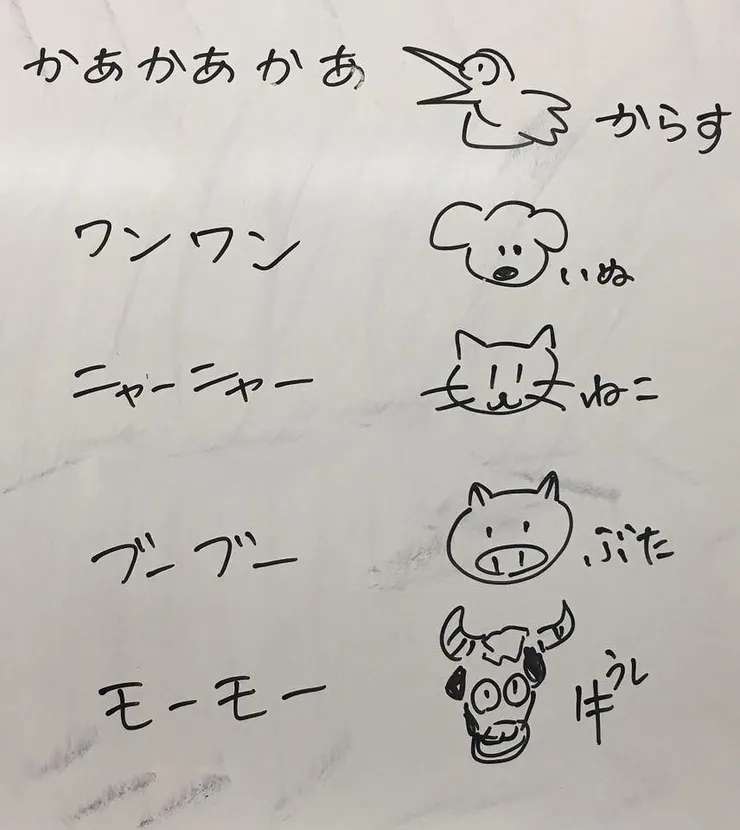 かあかあかあ からす
ワンワン いぬ
ニャーニャー ねこ
ブーブー ぶた
モーモー 牛 うし